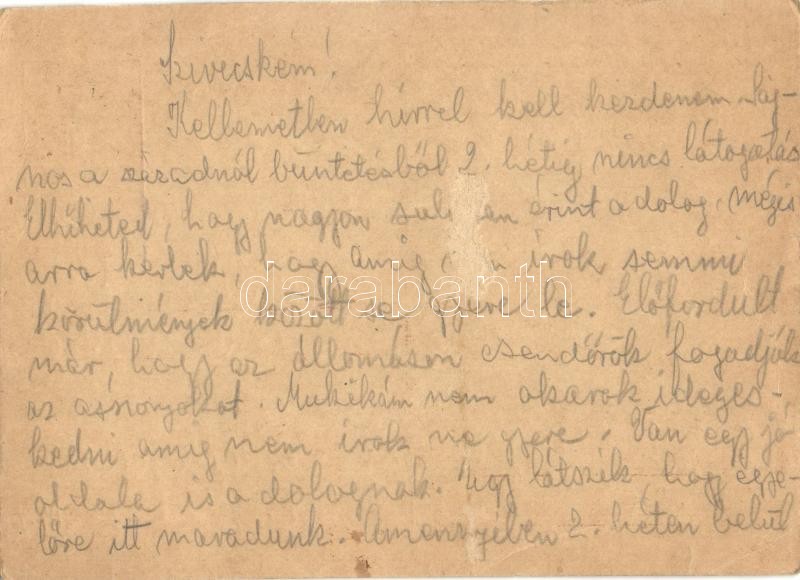 Szivecském!
Kellemetlen hírrel kell kezdenem Saj-
nos a századnál büntetésből 2. hétig nincs látogatás
Elhiheted, hogy nagyon érint a dolog, mégis
arra kérlek, hogy amig írok semmi
körülmények között ne gyere le. Előfordult
már, hogy az állomáson csendőrök fogadják
az asszonyokat. Mukikám nem akarok ideges-
kedni amig nem irok ne gyere. Van egy jó
oldala is a dolognak. Ugy látszik, hogy egye-
lőre itt maradunk. Amennyiben 2. héten belül
darabanth.com